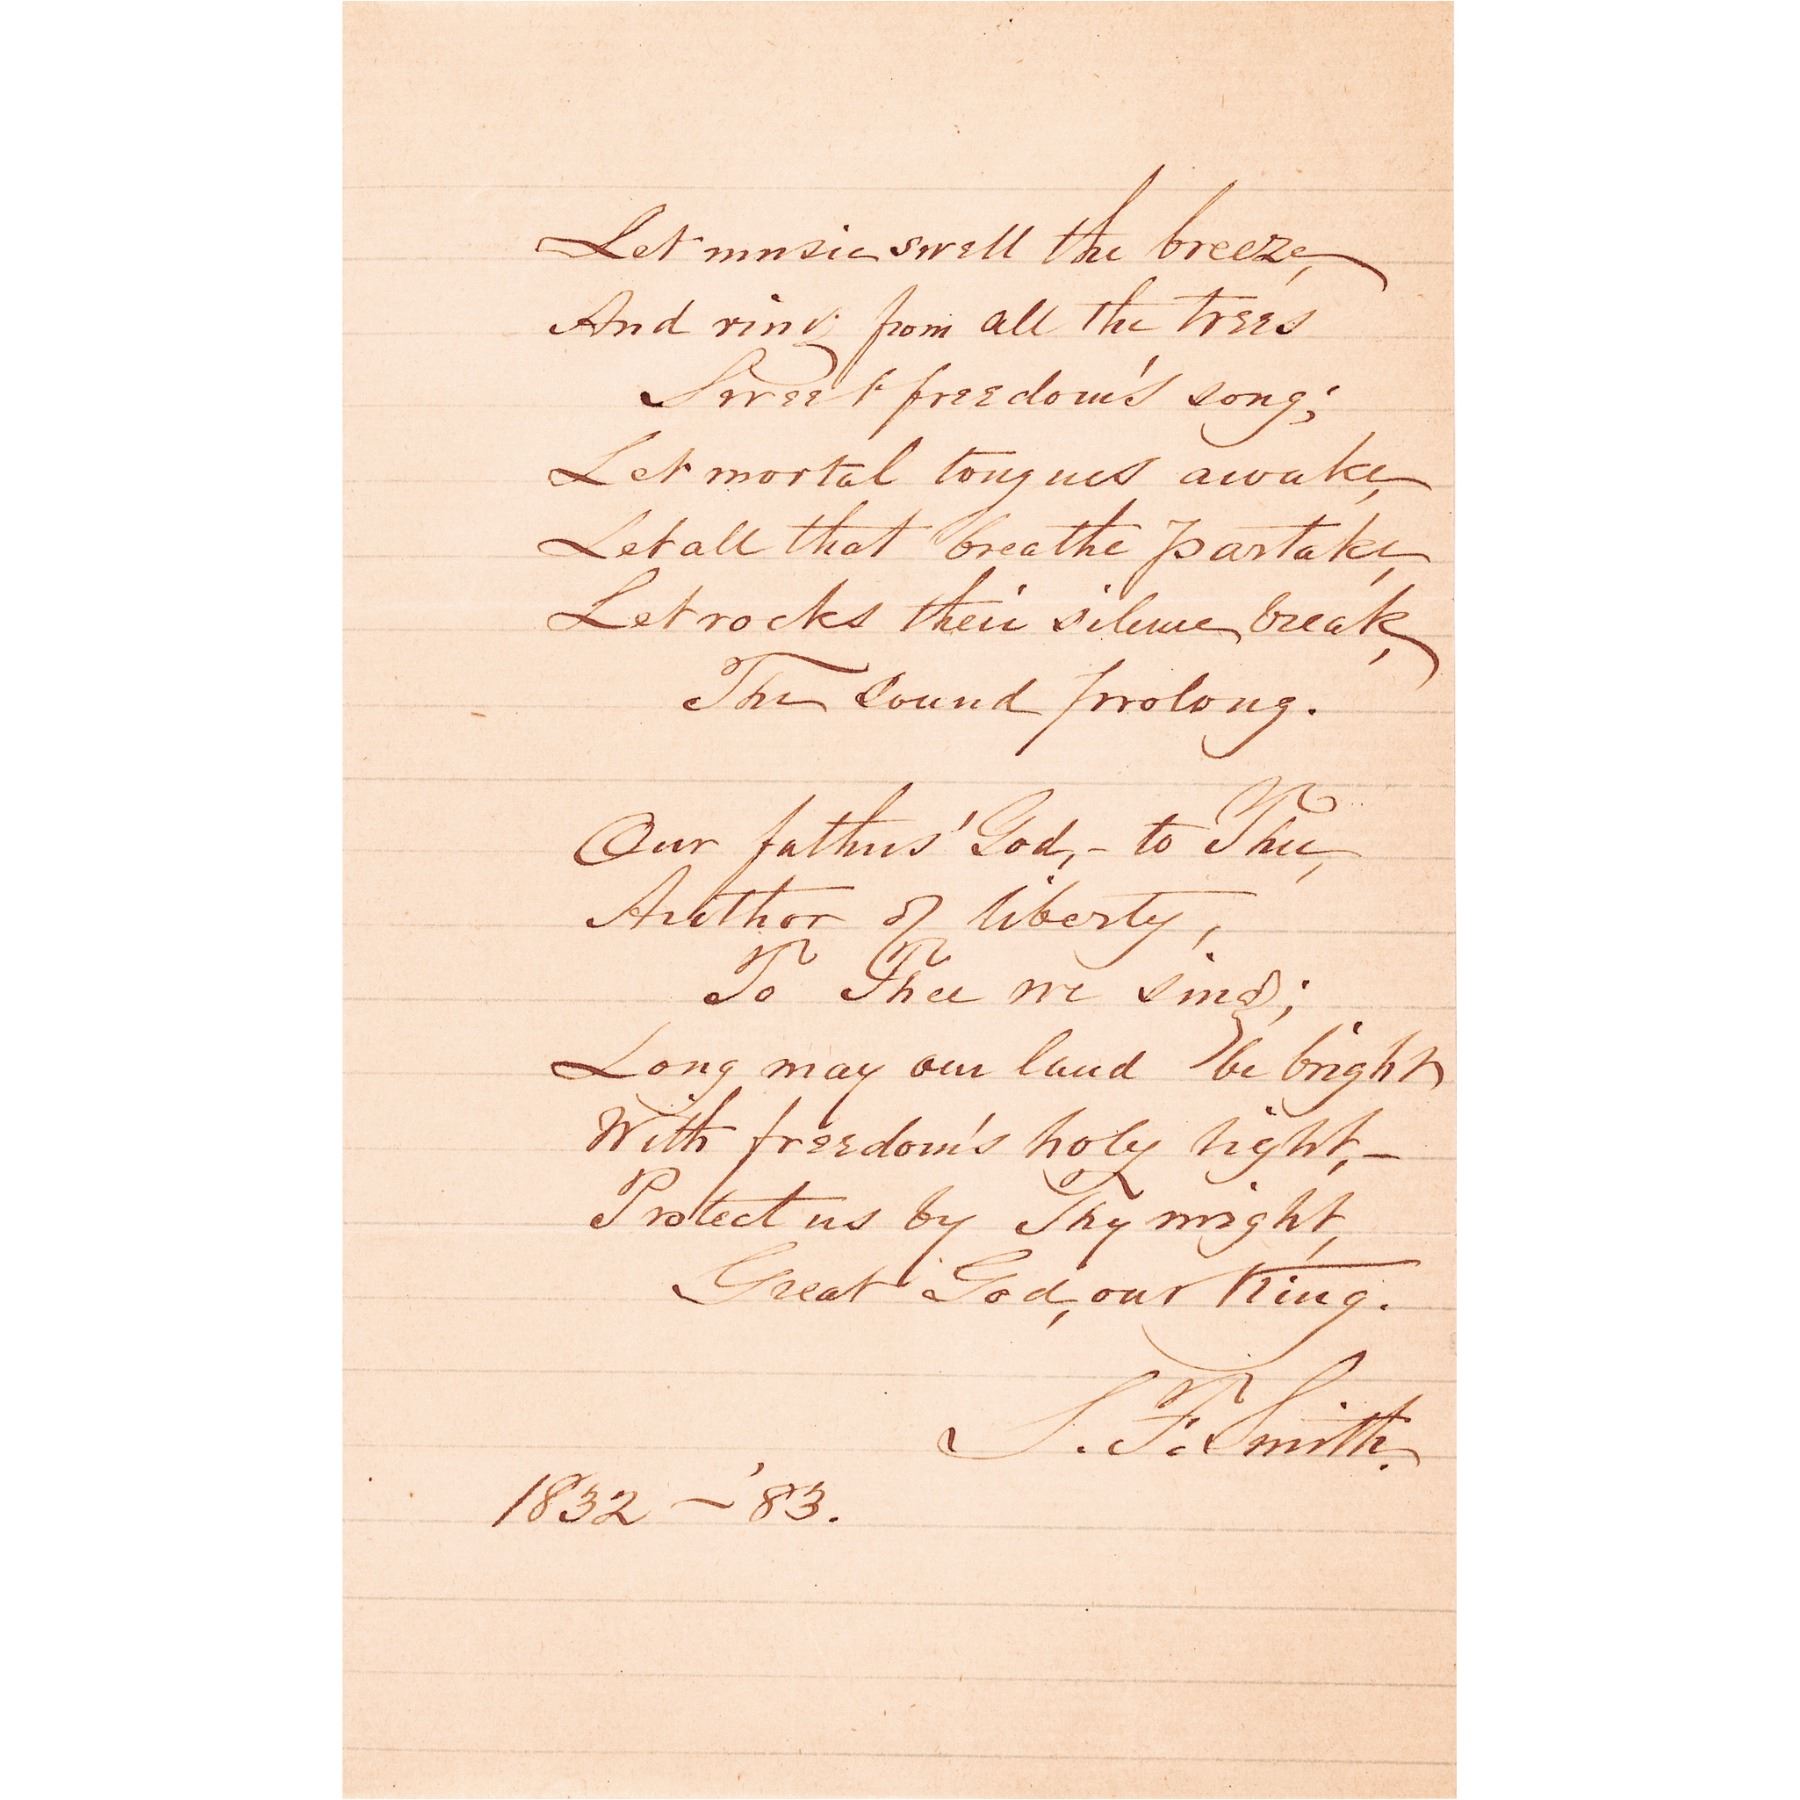 Let music swell the breeze,
And ring from all the trees
Sweet freedom's song;
Let mortal tongues awake,
Let all that breathe partake,
Let rocks their silence break,
The sound prolong.
Our fathers' God, – to Thee,
Author of liberty,
To Thee we sing;
Long may our land be bright
With freedom's holy light, –
Protect us by Thy might,
Great God, our King.
S. F. Smith.
1832 – '83.